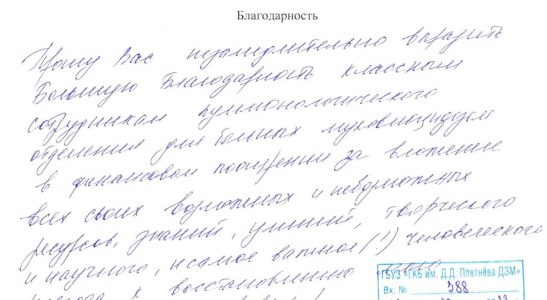 Благодарность
Прошу Вас незамедлительно выразить
Большую Благодарность классным
сотрудникам пульмонологического
отделения для больных муковисцидозом
в финансовом поощрении за вложение
всех своих возможных и невозможных
ресурсов, знаний, умений, творческого
и научного, и самое важное (!) человеческого
подхода к восстановлению
ГБУЗ "ГКБ им. Д.Д. Плетнёва ДЗМ"
Вх. № 388